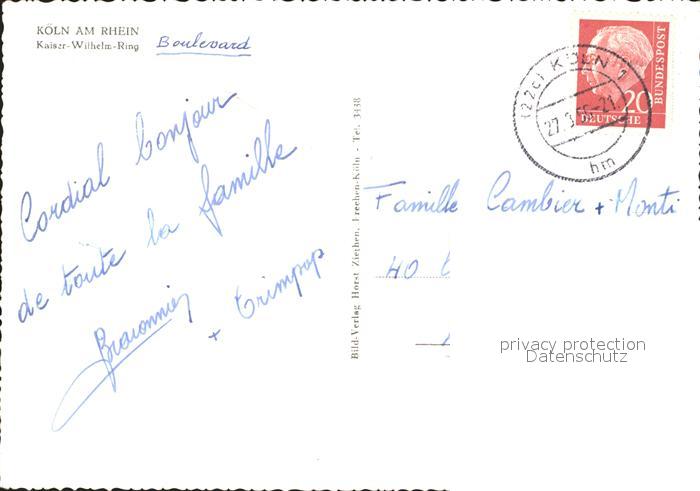 KÖLN AM RHEIN
Kaiser-Wilhelm-Ring Boulevard
Cordial bonjour
de toute la famille
+ Grimpop
Bild-Verlag Horst Ziethen, Frechen-Köln - Tel. 3438
(22c) KÖLN 1
27.3.56-21
hm
20
DEUTSCHE
BUNDESPOST
Famille Cambier + Monti
40
privacy protection
Datenschutz